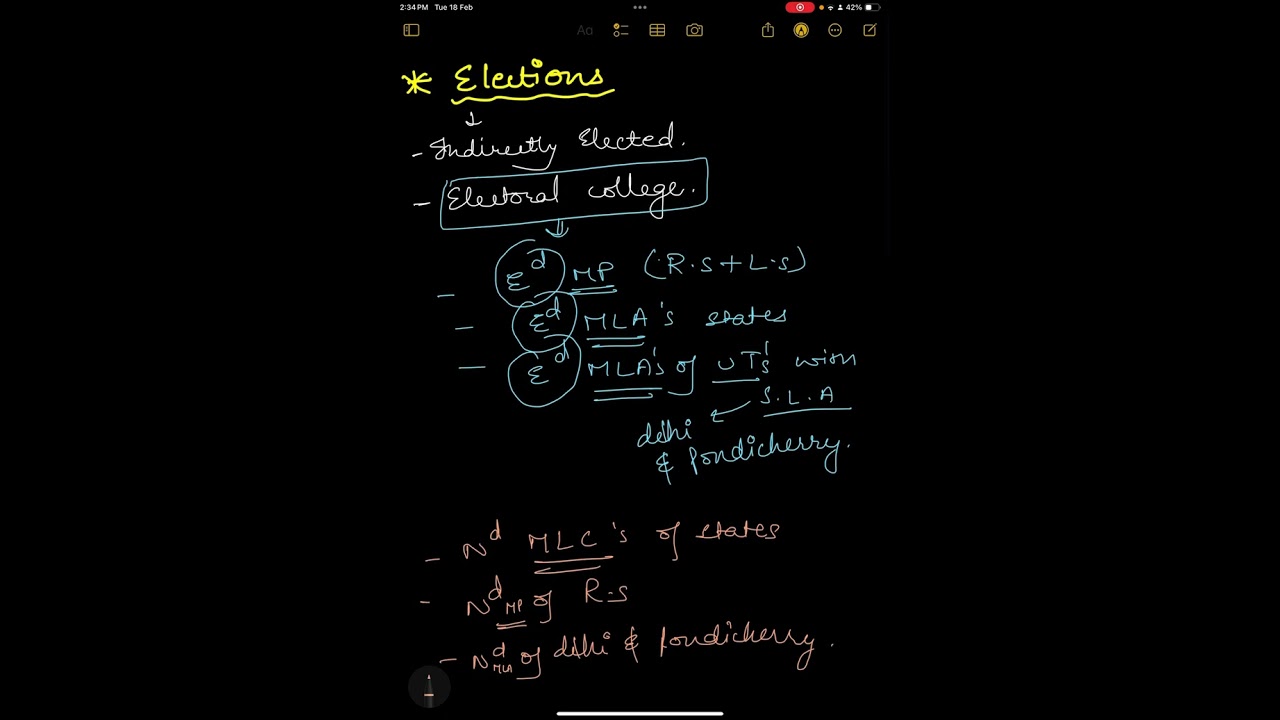 2:34 PM Tue 18 Feb
42%
Aa
* Elections
- Indirectly Elected.
- Electoral college.
- Eᵈ MP (R.S + L.S)
- Eᵈ MLA's states
- Eᵈ MLA's of UT's with
S.L.A
delhi
& Pondicherry.
- Nᵈ MLC's of states
- Nᵈ MP of R.S
- Nᵈ MLA of delhi & Pondicherry.